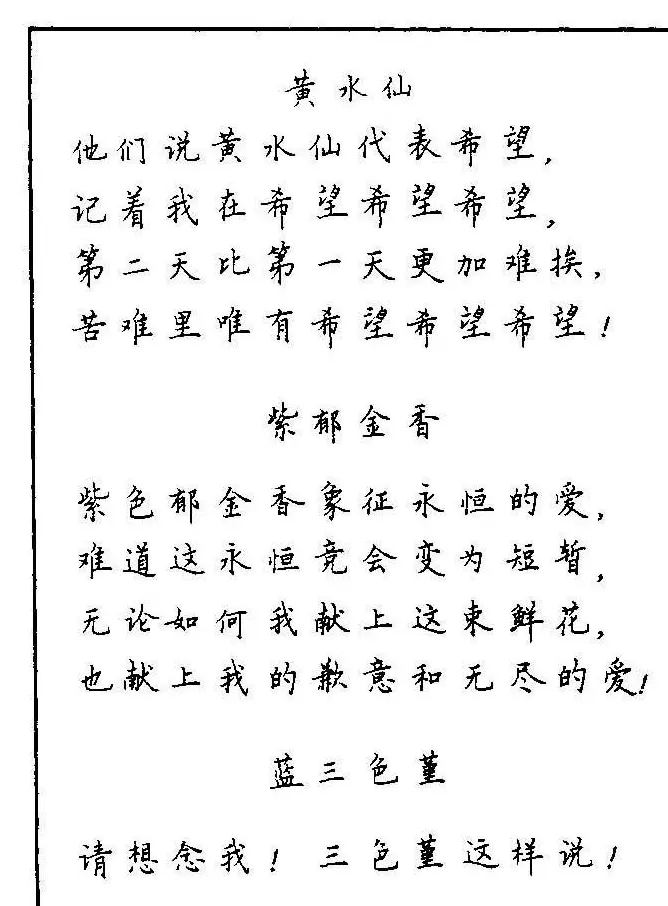 黄水仙
他们说黄水仙代表希望，
记着我在希望希望希望，
第二天比第一天更加难挨，
苦难里唯有希望希望希望！
紫郁金香
紫色郁金香象征永恒的爱，
难道这永恒竟会变为短暂，
无论如何我献上这束鲜花，
也献上我的歉意和无尽的爱！
蓝三色堇
请想念我！三色堇这样说！